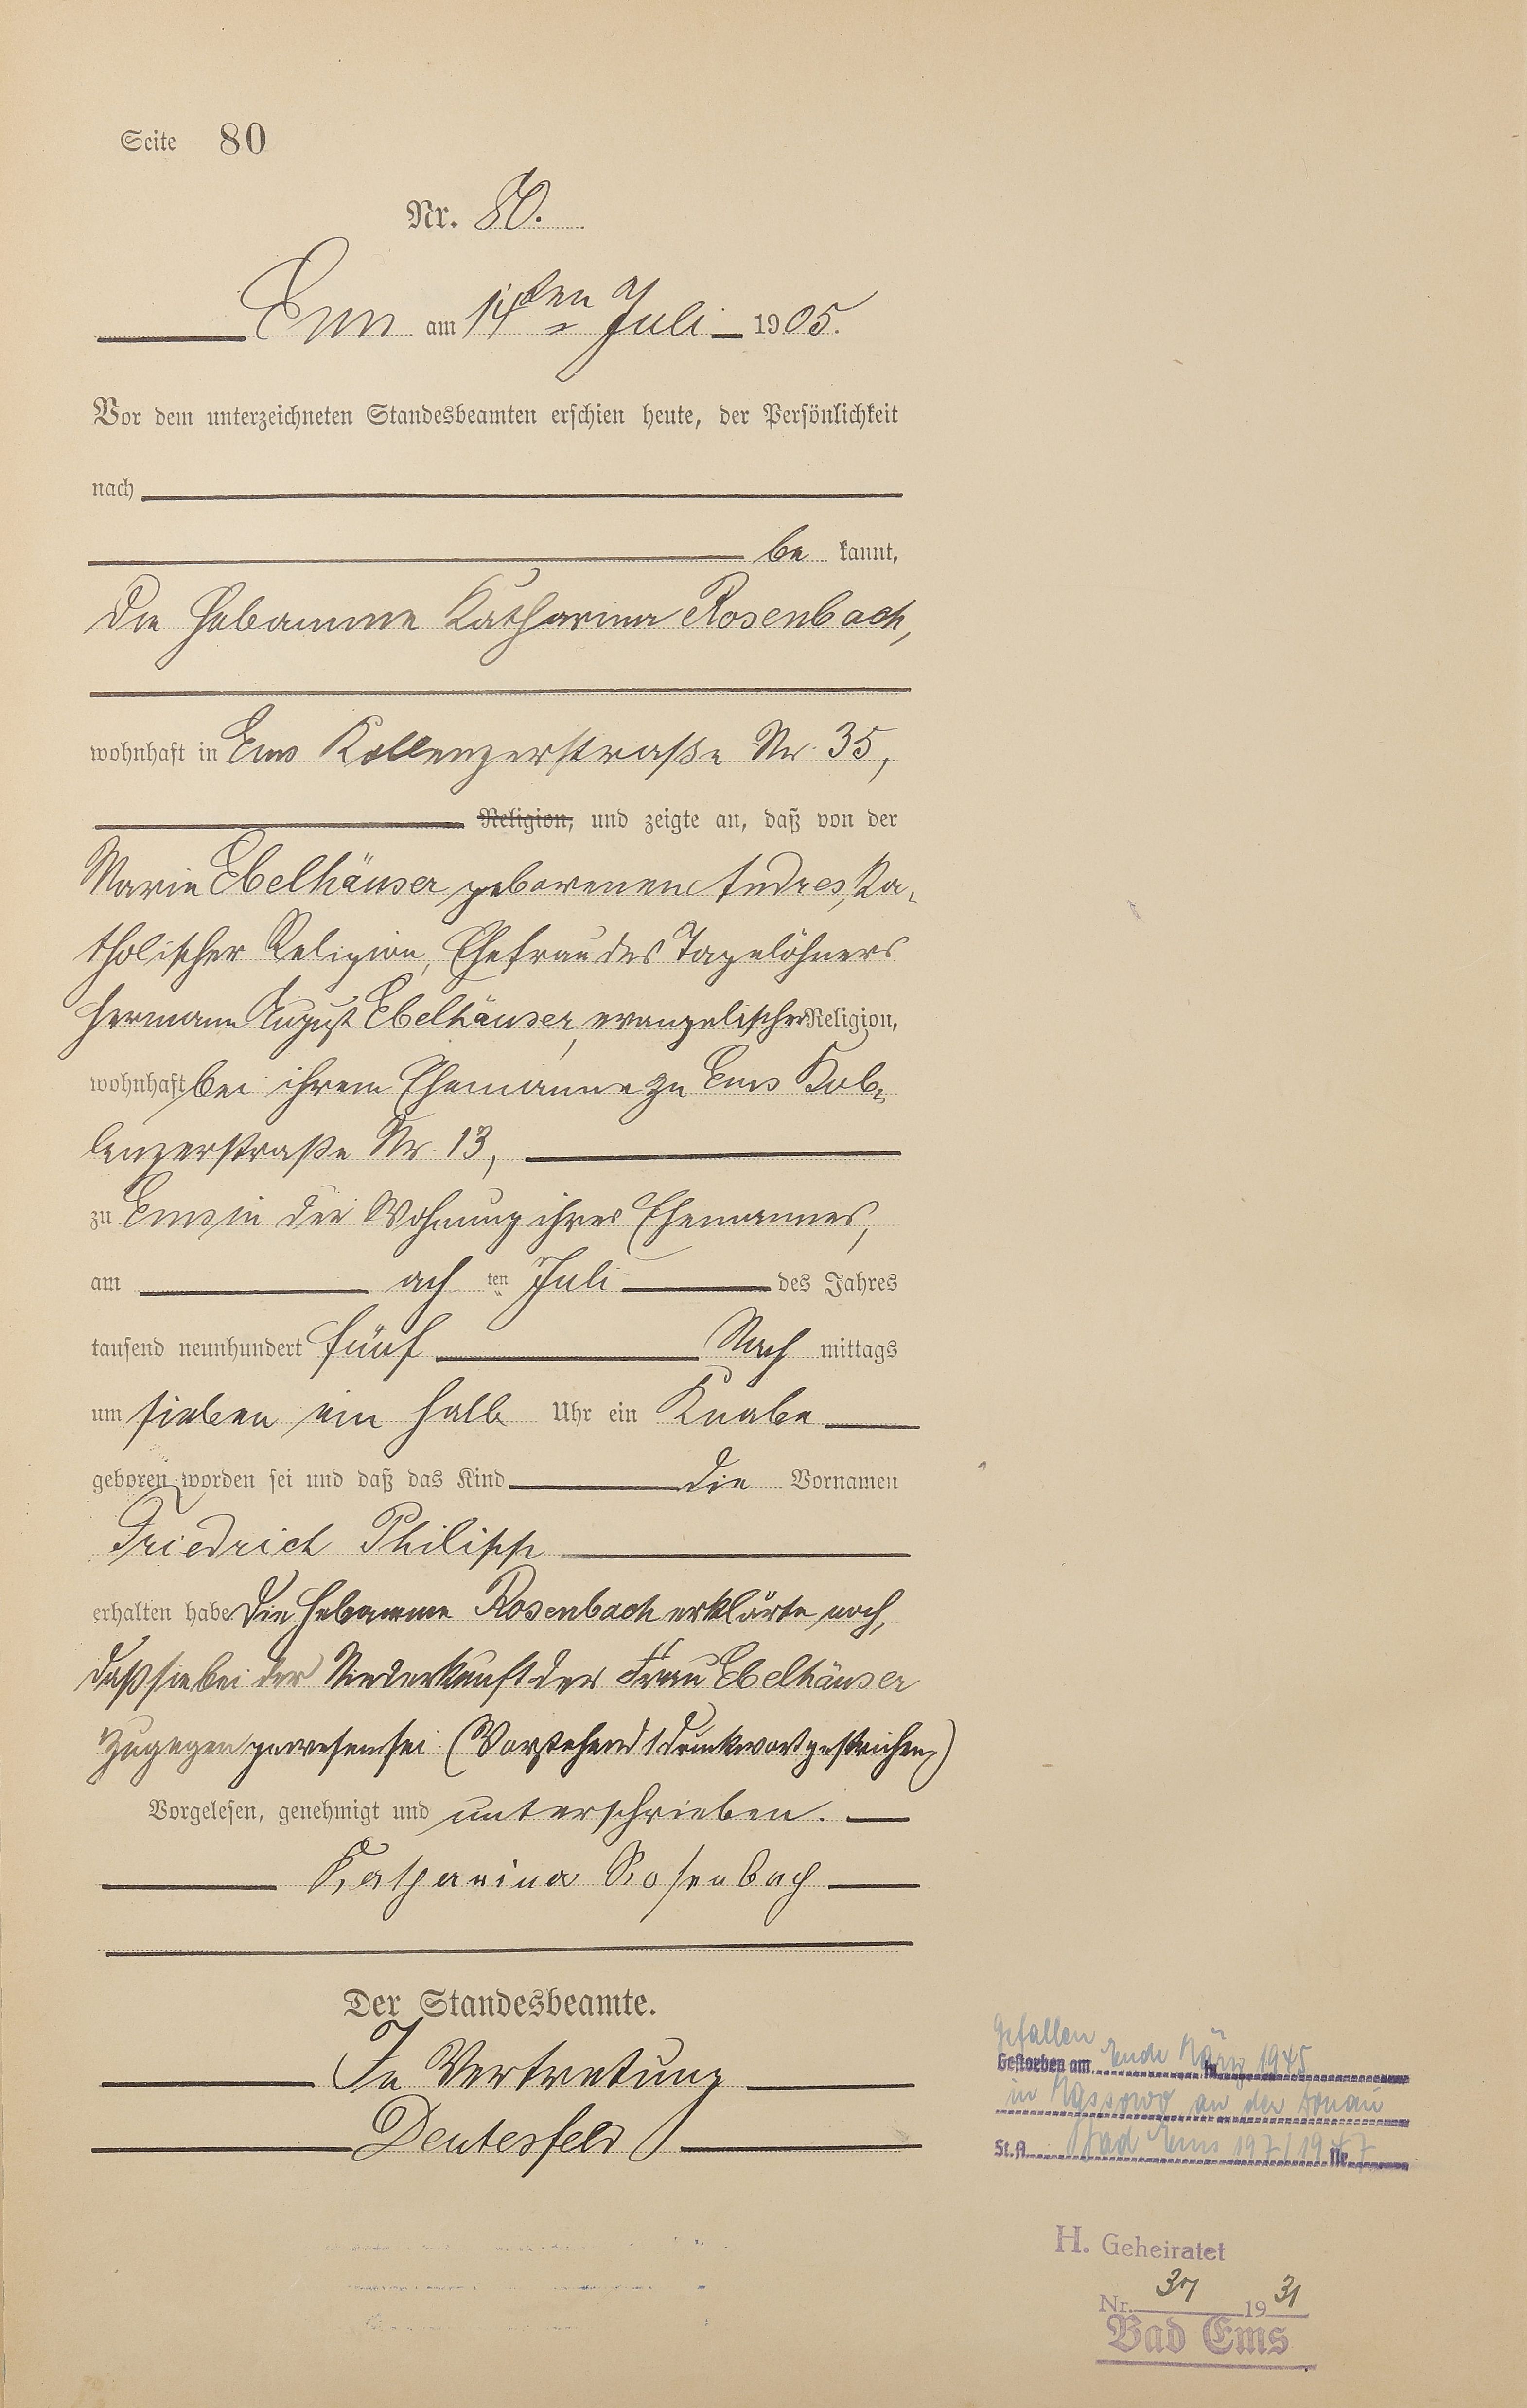 Seite 80
Nr. 80.
Ems am 14ten Juli 1905.
Vor dem unterzeichneten Standesbeamten erschien heute, der Persönlichkeit
nach
be kannt,
die Hebamme Katharina Rosenbach,
wohnhaft in Ems Koblenzerstraße Nr. 35,
Religion, und zeigte an, daß von der
Marie Ebelhäuser geborenen Endres, ka-
tholischer Religion, Ehefrau des Tagelöhners
Hermann August Ebelhäuser, evangelischer Religion,
wohnhaft bei ihrem Ehemanne zu Ems Kob-
lenzerstraße Nr. 13,
zu Ems in der Wohnung ihres Ehemannes,
am ach ten Juli des Jahres
tausend neunhundert fünf Nach mittags
um sieben ein halb Uhr ein Knabe
geboren worden sei und daß das Kind die Vornamen
Friedrich Philipp
erhalten habe Die Hebamme Rosenbach erklärte noch,
daß sie bei der Niederkunft der Frau Ebelhäuser
zugegen gewesen sei. (Vorstehend 1 Druckwort gestrichen.)
Vorgelesen, genehmigt und unterschrieben.
Katharina Rosenbach
Der Standesbeamte.
In Vertretung
Deutesfeld
Gefallen
Gestorben am Ende März 1945
in an der Donau
St.A. Bad Ems 197/1947 Nr.
H. Geheiratet
Nr. 37 1931
Bad Ems